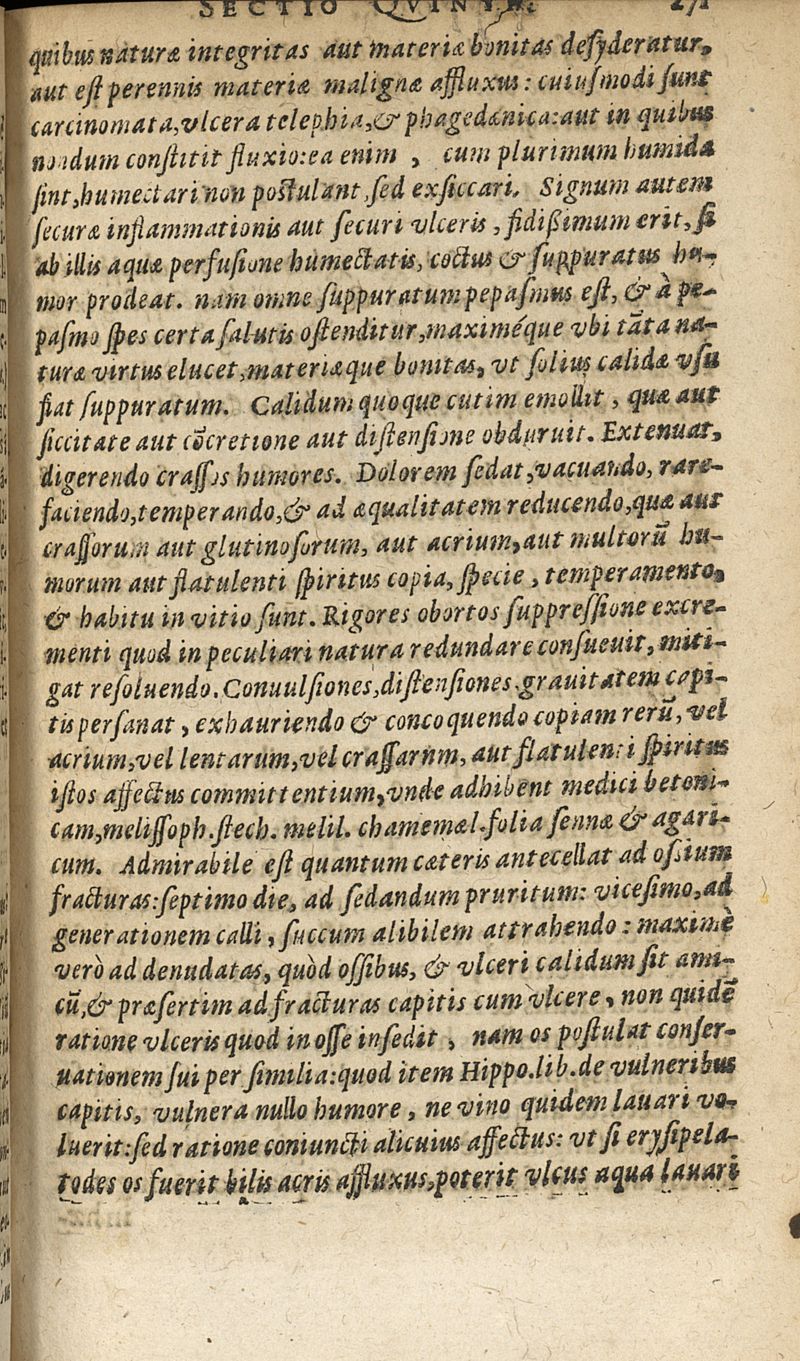 SECTIO QVINTA. 271
quibus naturæ integritas aut materiæ bonitas deſyderatur,
aut eſt perennis materiæ malignæ affluxus: cuiuſmodi ſunt
carcinomata,vlcera telephia,& phagedænica:aut in quibus
nondum conſtitit fluxio:ea enim , cum plurimum humida
ſint,humectari non poſtulant,ſed exſiccari. Signum autem
ſecuræ inflammationis aut ſecuri vlceris, fidißimum erit, ſi
ab illis aquæ perfuſione humectatis, coctus & ſuppuratus hu-
mor prodeat. nam omne ſuppuratum pepaſmus eſt, & à pe-
paſmo ſpes certa ſalutis oſtenditur,maximéque vbi tāta na-
turæ virtus elucet,materiæque bonitas, vt ſolius calidæ vſu
fiat ſuppuratum. Calidum quoque cutim emollit, quæ aut
ſiccitate aut cōcretione aut diſtenſione obduruit. Extenuat,
digerendo craſſos humores. Dolorem ſedat,vacuando, rare-
faciendo,temperando,& ad æqualitatem reducendo,quæ aut
craſſorum aut glutinoſorum, aut acrium,aut multorū hu-
morum aut flatulenti ſpiritus copia, ſpecie, temperamento,
& habitu in vitio ſunt. Rigores obortos ſuppreſſione excre-
menti quod in peculiari natura redundare conſueuit, miti-
gat reſoluendo. Conuulſiones,diſtenſiones,grauitatem capi-
tis perſanat, exhauriendo & concoquendo copiam rerū, vel
acrium,vel lentarum,vel craſſarum, aut flatulenti ſpiritus
iſtos affectus committentium,vnde adhibent medici betoni-
cam,meliſſoph.ſtech. melil. chamemæl.folia ſennæ & agari-
cum. Admirabile eſt quantum cæteris antecellat ad oſsium
fracturas:ſeptimo die, ad ſedandum pruritum: viceſimo,ad
generationem calli, ſuccum alibilem attrahendo: maximè
verò ad denudatas, quòd oſſibus, & vlceri calidum ſit ami-
cū,& præſertim ad fracturas capitis cum vlcere, non quidē
ratione vlceris quod in oſſe inſedit, nam os poſtulat conſer-
uationem ſui per ſimilia:quod item Hippo.lib.de vulneribus
capitis, vulnera nullo humore, ne vino quidem lauari vo-
luerit:ſed ratione coniuncti alicuius affectus: vt ſi eryſipela-
todes os fuerit bilis acris affluxus,poterit vlcus aqua lauari